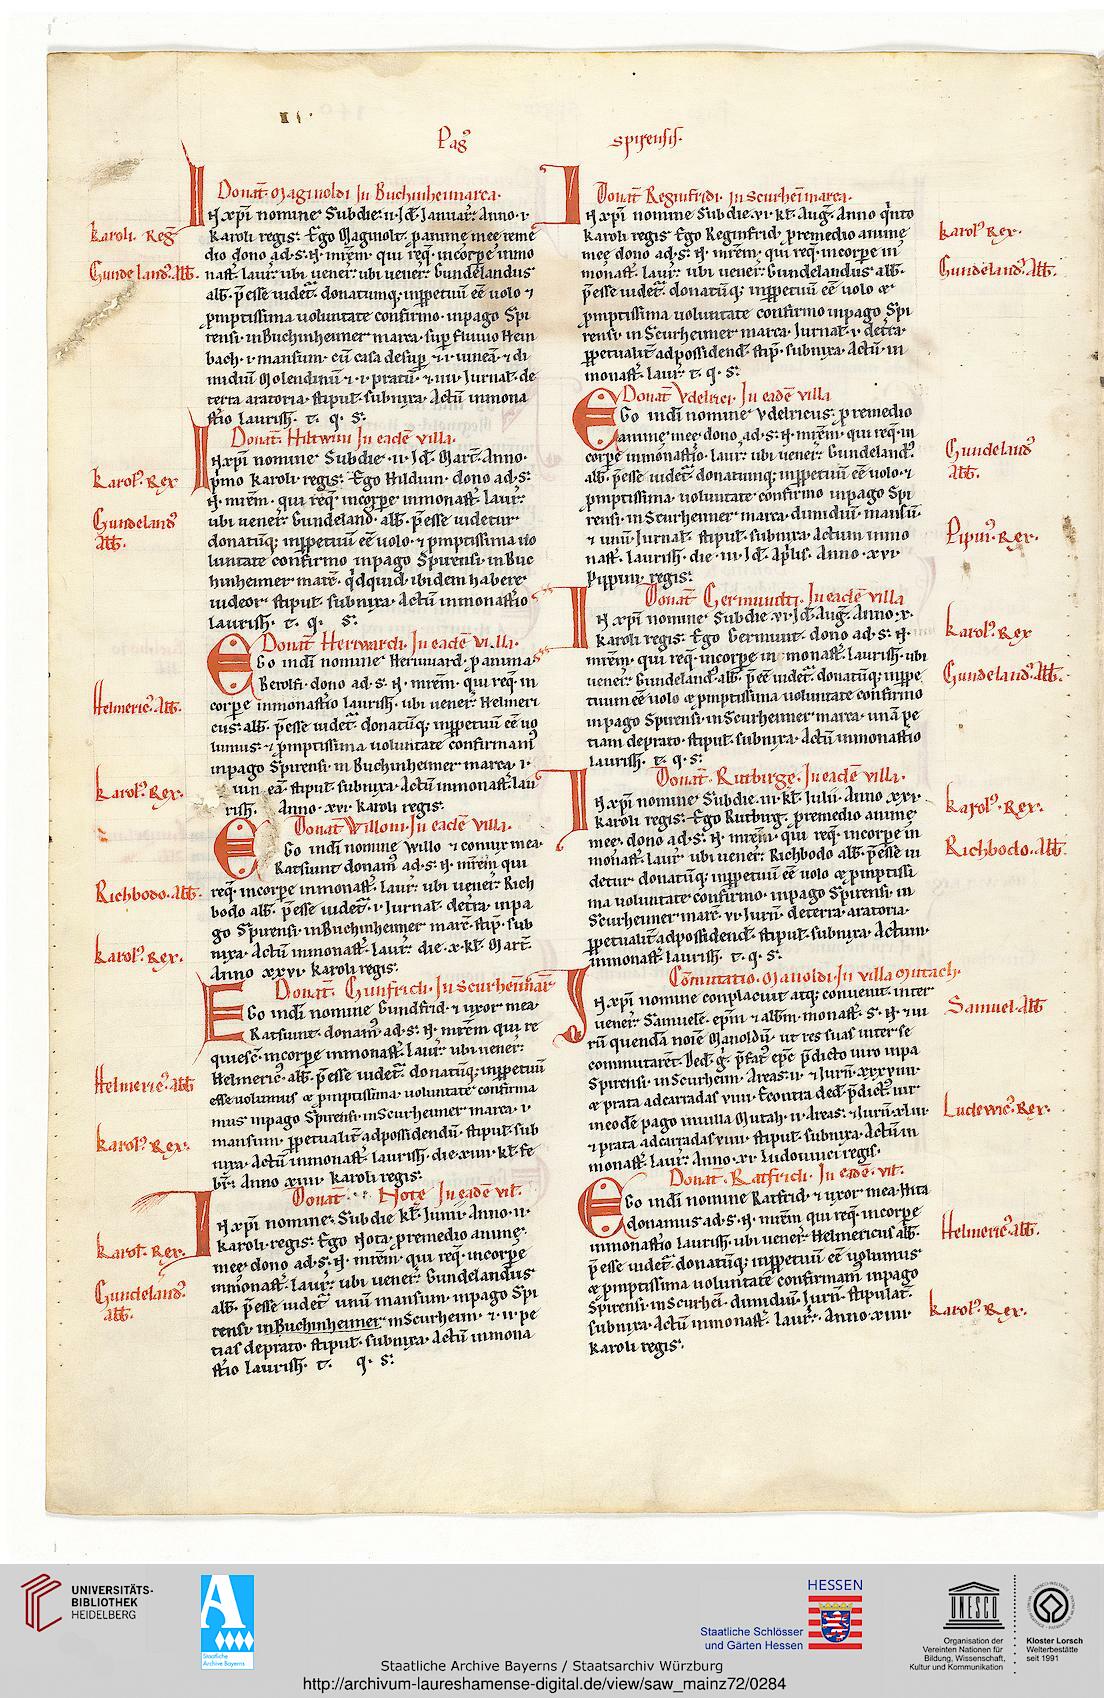 Pag⁹ spirensis.
Donat̄. Maginoldi In Buchinheimarca.
IN xp̄i nomine Sub die. ii. Id̄. Januar̄. Anno. i.
karoli regis. Ego Maginolt. p̱ anime mee reme
dio dono ad. s. N. mr̄em. qui req̄. in corp̱e in mo
nast̄. laur̄. ubi uener̄. ubi uener̄. Gundelandus
abb̄. p̄esse uidet̄. donatumq; in p̱petuū eē uolo ⁊
p̱mptissima voluntate confirmo. in pago Spi
rensi. in Buchinheimer marca. sup̱ fluuio Hein
bach. i. mansum. cū casa desup̱ ⁊. i. uineā. ⁊ di
midiū Molendinū ⁊. i. pratū. ⁊. iiii. Iurnal̄. de
terra aratoria. stipul̄. subnixa. Actū in mona
st̄io Laurish̄. t. q. s.
Donat̄. Hiltwini In eadē villa.
IN xp̄i nomine Sub die. ii. Id̄. Mart̄. Anno.
p̱mo karoli regis. Ego Hilduin. dono ad. s.
N. mr̄em. qui req̄. in corp̱e in monast̄. laur̄.
ubi uener̄. Gundeland. abb̄. p̄esse uidetur
donatūq; in p̱petuū eē uolo. ⁊ p̱mptissima uo
luntate confirmo in pago Spirensi. in Buc
hinheimer marc̄. q̇dquid ibidem habere
uideor stipul̄. subnixa. Actū in monast̄io
laurish̄. t. q. s.
Donat̄ Herewardi. In eadē villa.
EGo in dī nomine Heriuuard. p̱ anima
Berolfi. dono ad. s. N. mr̄em. qui req̄. in
corp̱e in monast̄io laurish̄. ubi uener̄. Helmeri
cus. abb̄. p̄esse uidet̄. donatūq; in p̱petuū eē uo
lumus. ⁊ p̱mptissima uoluntate confirmam⁹
in pago Spirensi. in Buchinheimer marca. i.
uin eā. stipul̄. subnixa. Actū in monast̄. lau
rish̄. Anno. xvi. karoli regis.
Donat̄ Willoni. In eadē villa.
EGo in dī nomine Willo ⁊ coniux mea.
Ratsuint. donam⁹ ad. s. N. mr̄em qui
req̄. in corp̱e in monast̄. laur̄. ubi uener̄. Rich
bodo abb̄. p̄esse uidet̄. i. Iurnal̄. de tr̄a. in pa
go Spirensi. in Buchinheimer marc̄. stip̄. sub
nixa. Actū in monast̄. laur̄. die. x. kl̄. Mart̄.
Anno xxvi. karoli regis.
Donat̄. Gunfridi. In Scurheim̄ mar̄
EGo in dī nomine Gundfrid. ⁊ uxor mea.
Ratsuint. donam⁹ ad. s. N. mr̄em qui re
quiesc̄. in corp̱e in monast̄. laur̄. ubi uener̄.
Helmeric⁹. abb̄. p̄esse uidet̄. donatūq; in p̱petuū
esse uolumus ⁊ p̱mptissima. voluntate confirma
mus in pago Spirensi. in Scurheimer marca. i.
mansum. p̱petualit̄ ad possidendū. stipul̄. sub
nixa. Actū in monast̄. laurish̄. die. xiiii. kl̄. fe
br̄. Anno xiiii. karoli regis.
Donat̄. Note In eadē vil̄.
IN xp̄i nomine. Sub die kl̄. Iunii. Anno. ii.
karoli. regis. Ego Nota. p̱ remedio anime.
mee. dono ad. s. N. mr̄em. qui req̄. in corp̱e
in monast̄. laur̄. ubi uener̄. Gundelandus
abb̄. p̄esse uidet̄. unū mansum. in pago Spi
rensi in Buchinheimer. in Scurheim. ⁊. ii. pe
tias de prato. stipul̄. subnixa. Actū in mona
st̄io laurish̄. t. q. s.
karoli. Reḡ
Gundeland⁹. Abb̄.
karol⁹. Rex
Gundeland⁹
Abb̄.
Helmeric⁹. Abb̄.
karol⁹. Rex.
Richbodo. Abb̄.
karol⁹. Rex.
Helmeric⁹. abb̄
karol⁹. Rex.
karol⁹. Rex.
Gundeland⁹.
abb̄.
Donat̄ Reginfridi. In Scurheim̄ marca.
IN xp̄i nomine Sub die. vi. kl̄. Auḡ. Anno q̇nto
karoli regis Ego Reginfrid. p̱ remedio anime
mee dono ad. s. N. mr̄em. qui req̄. in corp̱e in
monast̄. laur̄. ubi uener̄. Gundelandus abb̄.
p̄esse uidet̄. donatūq; in p̱petuū eē uolo ⁊
p̱mptissima uoluntate confirmo in pago Spi
rensi. in Scurheimer marca. Iurnal̄. v. de tr̄a.
p̱petualit̄ ad possidend̄. stip̄. subnixa. Actū in
monast̄. laur̄. t. q. s.
Donat̄ Vdelrici. In eadē villa
EGo in dī nomine vdelricus. p̱ remedio
anime mee. dono. ad. s. N. mr̄em. qui req̄. in
corp̱e in monast̄io. laur̄. ubi uener̄. Gundeland⁹.
abb̄. p̄esse uidet̄. donatumq; in p̱petuū eē uolo. ⁊
p̱mptissima. voluntate confirmo in pago Spi
rensi. in Scurheimer marca. dimidiū mansū.
⁊ unū Iurnal̄. stipul̄. subnixa. actum in mo
nast̄. laurish̄. die. iii. Id̄. Ap̱lis. Anno. xvi.
pippini. regis.
Donat̄ Germundi. In eadē villa
IN xp̄i nomine Sub die. vi. Id̄. Auḡ. Anno. x.
karoli regis. Ego Germunt. dono ad. s. N.
mr̄em. qui req̄. in corp̱e in monast̄. laurish̄. ubi
uener̄. Gundeland⁹. abb̄. p̄eē uidet̄. donatūq; in p̱pe
tuum eē uolo ⁊ p̱mptissima uoluntate confirmo
in pago Spirensi. in Scurheimer marca. unā pe
tiam de prato. stipul̄. subnixa. Actū in monast̄io
laurish̄. t. q. s.
Donat̄. Rutburge. In eadē villa.
IN xp̄i nomine Sub die. iii. kl̄. Iulii. Anno xxx.
karoli regis. Ego Rutburg. p̱ remedio anime
mee. dono ad. s. N. mr̄em. qui req̄. in corp̱e in
monast̄. laur̄. ubi uener̄. Richbodo abb̄. p̄esse ui
detur donatūq; in p̱petuū eē uolo ⁊ p̱mptissi
ma uoluntate confirmo. in pago Spirensi. in
Scurheimer marc̄. vi. Iurn̄. de terra. aratoria.
p̱petualit̄ ad possidend̄. stipul̄. subnixa. Actum.
in monast̄. laurish̄. t. q. s.
Com̄utatio. Manoldi. In villa Mutach.
IN xp̄i nomine conplacuit atq; conuenit. inter
uener̄. Samuelē. ep̄m ⁊ abb̄m monast̄. S. N. ⁊ ui
rū quendā noīe Manoldū. ut res suas inter se
commutarēt. Ded̄. g̊. p̄fat⁹ ep̄c p̄dicto uiro in pa
Spirensi in Scurheim. Areas. ii. ⁊ Iurn̄. xxxviii.
⁊ prata ad carradas viii. Econtra ded̄. p̄dict⁹ uir
in eodē pago in uilla Mutah. ii. Areas. ⁊ Iurn̄. xl iii.
⁊ prata ad carradas viiii. stipul̄. subnixa. Actū in
monast̄. laur̄. Anno. xi. Ludouuici regis.
Donat̄. Ratfridi. In eadē. vil̄.
EGo in dī nomine Ratfrid. ⁊ uxor mea Hita
donamus ad. s. N. mr̄em qui req̄. in corp̱e
in monast̄io laurish̄. ubi uener̄. Helmericus abb̄.
p̄esse uidet̄. donatūq; in p̱petuū eē uolumus
⁊ p̱mptissima uoluntate confirmam⁹ in pago
Spirensi. in Scurhei. dimidiū. Iurn̄. stipulat̄.
subnixa. Actū in monast̄. laur̄. Anno. xiiii.
karoli regis.
karol⁹. Rex.
Gundeland⁹. Abb̄.
Gundeland⁹
abb̄.
Pipin⁹. Rex.
karol⁹. Rex
Gundeland⁹. Abb̄.
karol⁹. Rex.
Richbodo. Abb̄.
Samuel. Abb̄
Ludewic⁹. Rex.
Helmeric⁹. abb̄.
karol⁹. Rex.
UNIVERSITÄTS-
BIBLIOTHEK
HEIDELBERG
Staatliche
Archive Bayerns
HESSEN
Staatliche Schlösser
und Gärten Hessen
UNESCO
Organisation der
Vereinten Nationen für
Bildung, Wissenschaft,
Kultur und Kommunikation
Kloster Lorsch
Welterbestätte
seit 1991
Staatliche Archive Bayerns / Staatsarchiv Würzburg
http://archivum-laureshamense-digital.de/view/saw_mainz72/0284